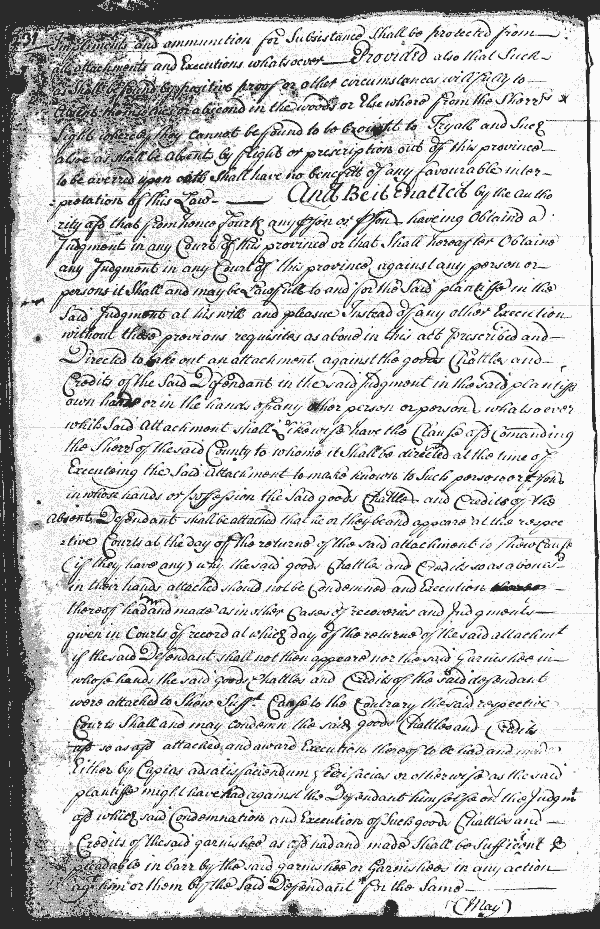 Impliments and ammunition for Subsistance Shall be protected from
attachments and Executions whatsoever Provided also that Such
as Shall be found by positive proof or other circumstances willfully to
absent themselves or abscond in the woods or Elsewhere from the Sherrs
Sight whereby they cannot be found to be brought to Tryall and Such
alsoe as shall be absent by flight or prescription out of this province
to be averred upon oath Shall have no benefitt of any favourable inter-
-pretation of this Law- And Be it Enacted by the autho
rity afsd that from hence forth any pson or psons haveing Obtained a
Judgment in any Court of this province or that Shall hereafter Obtaine
any Judgment in any Court of this province against any person or
persons it Shall and may be Lawfull to and for the Said plantiffe in the
Said Judgment at his will and pleasue Instead of any other Execution
without these previous requisites as above in this act prescribed and
Directed to take out an attachment against the goods Chattles and
Credits of the Said Defendant in the said Judgment in the said plantiffs
own hands or in the hands of any other person or persons whatsoever
which Said Attachment shall Likewise have the Clause afsd Comanding
the Sherr of the said County to whome it Shall be directed at the time of
Executeing the Said Attachment to make known to Such person or psons
in whose hands or possession the Said goods Chattles and Credits of the
Absent Defendant shall be attached that he or they be and appeare at the respec
-tive Courts at the day of the returne of the said attachment to shew Cause
(if they have any) why the said goods Chattles and Credits so as aboves
in their hands attached should not be Condemned and Execution
thereof had and made as in other Cases of recoveries and Judgments
given in Courts of record at which day of the returne of the said attachmt
if the said Defendant shall not then appeare nor the said Garnishee in
whose hands the said goods Chattles and Credits of the said defendant
were attached to Shew Sufft Cause to the Contrary the said respective
Courts Shall and may Condemn the said goods Chattles and Credits
afsd so as afsd attached, and award Execution thereof to be had and made
Either by Capias ad satisfaciendum, fieri facias or otherwise as the said
plantiffe might have had against the Defendant himselfe on the Judgmt
afsd which said Condemnation and Execution of Such goods Chattles and
Credits of the said garnishee as afsd had and made Shall be Sufficient &
pleadable in barr by the said garnishee or Garnishees in any action
agt him or them by the Said Defendant for the Same
(May)